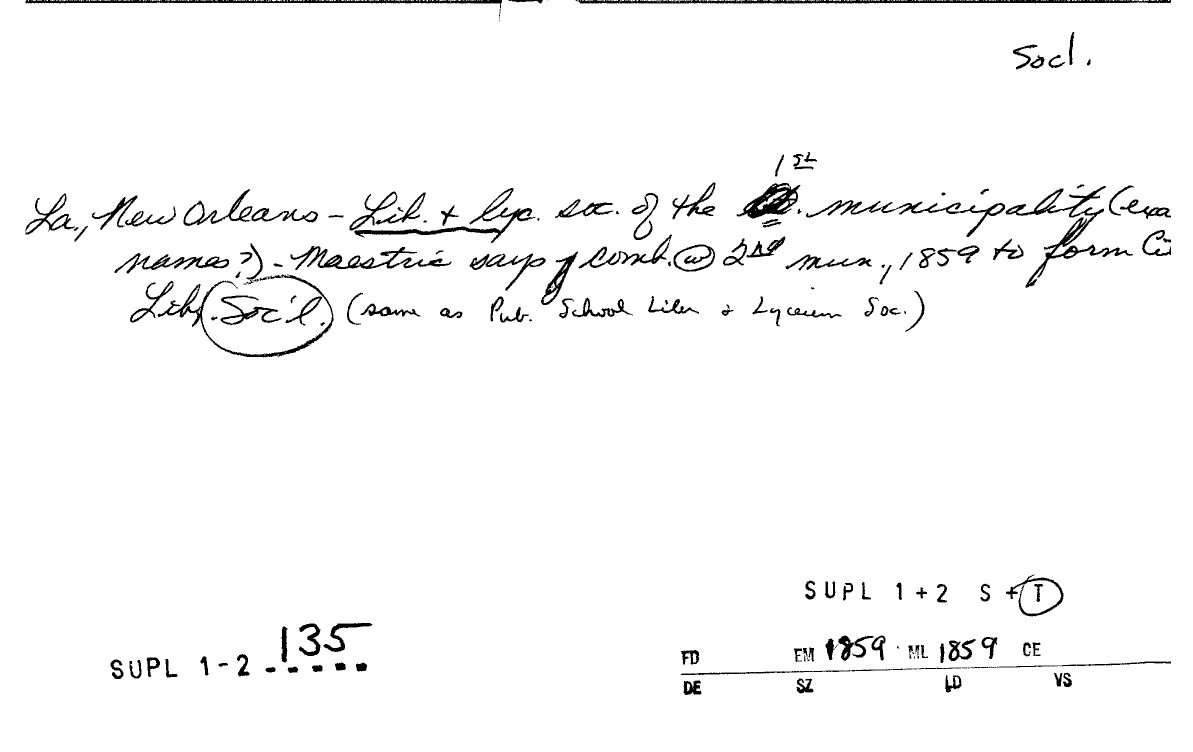 Socl.
1st
La., New Orleans - Lib. + lyc. soc. of the municipality (exa
names?) - Maestric says comb. w 2nd mun., 1859 to form Cit
Lib. Soc'l. (same as Pub. School Liby & Lyceum Soc.)
SUPL 1+2 S + T
SUPL 1-2 135
FD EM 1859 ML 1859 CE
DE SZ LD VS